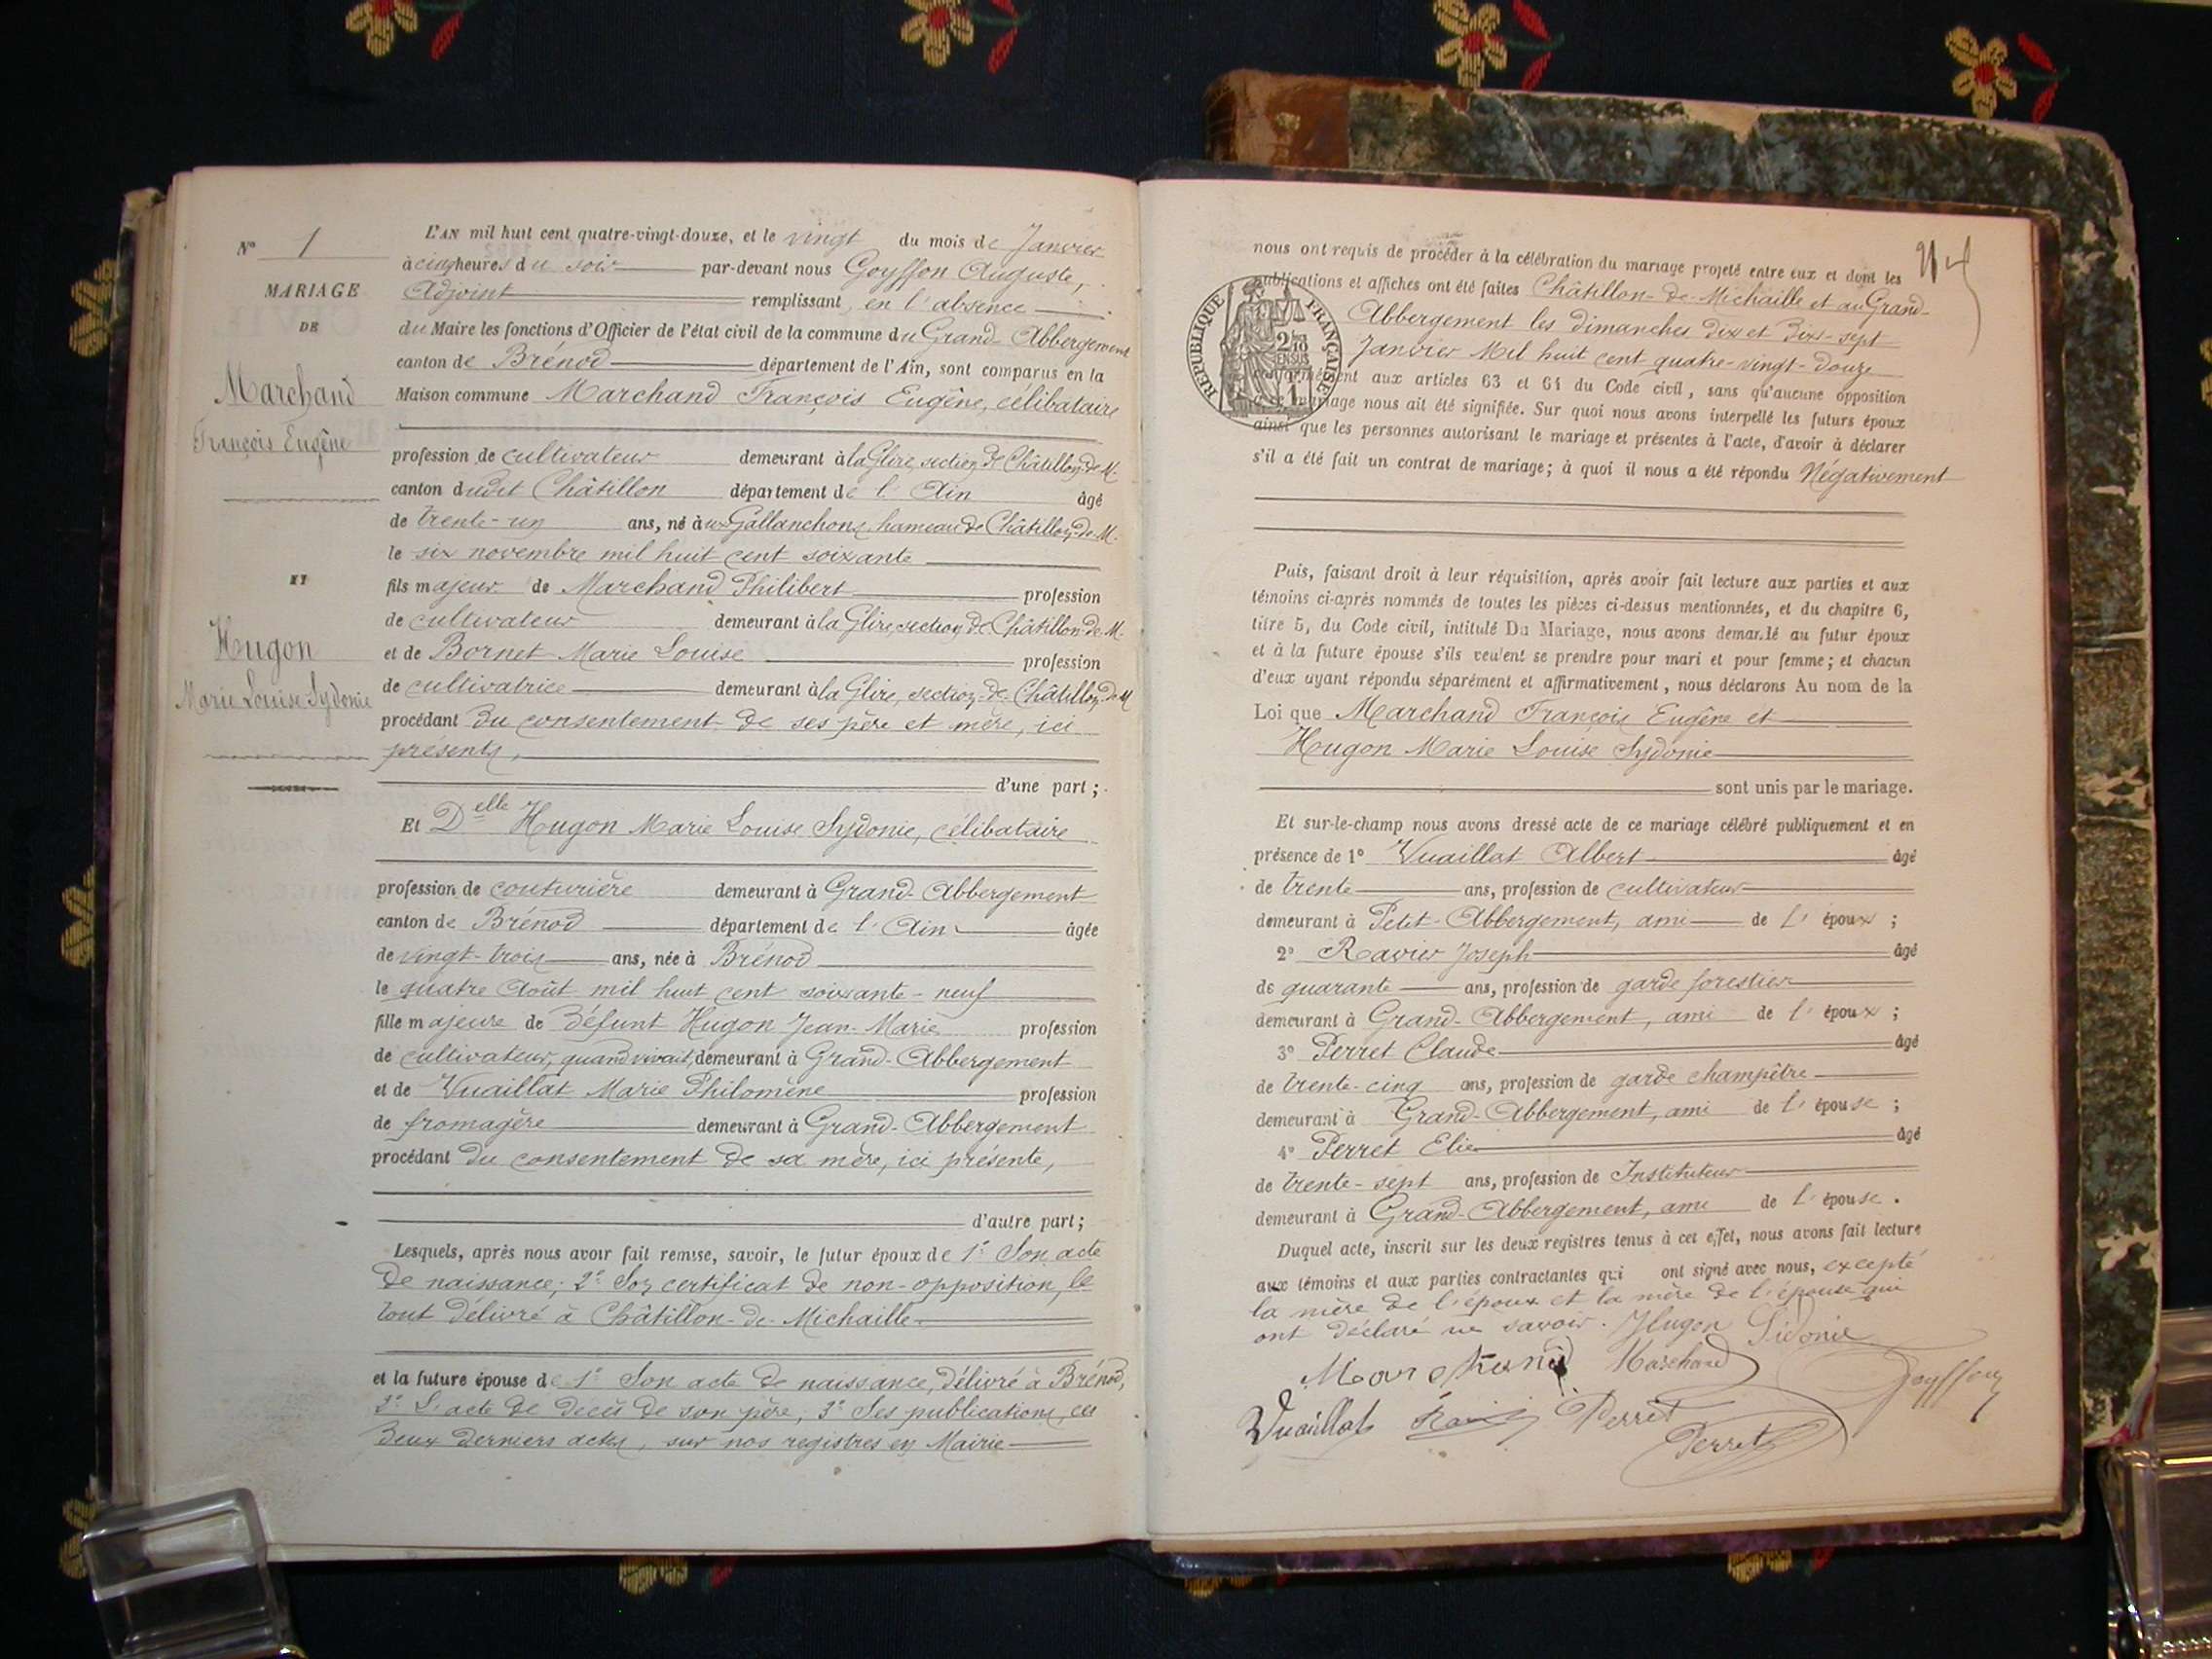 N° 1
MARIAGE
DE
Marchand
François Eugène
ET
Hugon
Marie Louise Sydonie
L'AN mil huit cent quatre-vingt-douze, et le vingt du mois de Janvier
à cinq heures du soir par-devant nous Goyffon Auguste,
Adjoint remplissant, en l'absence
du Maire les fonctions d'Officier de l'état civil de la commune du Grand-Abbergement
canton de Brénod département de l'Ain, sont comparus en la
Maison commune Marchand François Eugène, célibataire
profession de cultivateur demeurant à la Glire, section de Châtillon-de-M.
canton dudit Châtillon département de l'Ain âgé
de trente-un ans, né aux Gallanchons, hameau de Châtillon-de-M.
le six novembre mil huit cent soixante
fils majeur de Marchand Philibert profession
de cultivateur demeurant à la Glire, section de Châtillon-de-M.
et de Bornet Marie Louise profession
de cultivatrice demeurant à la Glire, section de Châtillon-de-M
procédant du consentement de ses père et mère, ici
présents,
d'une part ;
Et Delle Hugon Marie Louise Sydonie, célibataire
profession de couturière demeurant à Grand-Abbergement
canton de Brénod département de l'Ain âgée
de vingt-trois ans, née à Brénod
le quatre Août mil huit cent soixante-neuf
fille majeure de défunt Hugon Jean-Marie profession
de cultivateur, quand vivait, demeurant à Grand-Abbergement
et de Vuaillat Marie Philomène profession
de fromagère demeurant à Grand-Abbergement
procédant du consentement de sa mère, ici présente,
d'autre part ;
Lesquels, après nous avoir fait remise, savoir, le futur époux de 1° Son acte
de naissance; 2° Son certificat de non-opposition, le
tout délivré à Châtillon-de-Michaille
et la future épouse de 1° Son acte de naissance, délivré à Brénod,
2° L'acte de décès de son père, 3° Ses publications, ces
deux derniers actes, sur nos registres en Mairie
nous ont requis de procéder à la célébration du mariage projeté entre eux et dont les
publications et affiches ont été faites Châtillon-de-Michaille et au Grand-
Abbergement les dimanches dix et dix-sept
Janvier Mil huit cent quatre-vingt-douze
conformément aux articles 63 et 64 du Code civil, sans qu'aucune opposition
mariage nous ait été signifiée. Sur quoi nous avons interpellé les futurs époux
ainsi que les personnes autorisant le mariage et présentes à l'acte, d'avoir à déclarer
s'il a été fait un contrat de mariage ; à quoi il nous a été répondu Négativement
RÉPUBLIQUE FRANÇAISE
2/10
EN SUS
1
Puis, faisant droit à leur réquisition, après avoir fait lecture aux parties et aux
témoins ci-après nommés de toutes les pièces ci-dessus mentionnées, et du chapitre 6,
titre 5, du Code civil, intitulé Du Mariage, nous avons demandé au futur époux
et à la future épouse s'ils veulent se prendre pour mari et pour femme ; et chacun
d'eux ayant répondu séparément et affirmativement, nous déclarons Au nom de la
Loi que Marchand François Eugène et
Hugon Marie Louise Sydonie
sont unis par le mariage.
Et sur-le-champ nous avons dressé acte de ce mariage célébré publiquement et en
présence de 1° Vuaillat Albert âgé
de trente ans, profession de cultivateur
demeurant à Petit-Abbergement, ami de l'époux ;
2° Ravier Joseph âgé
de quarante ans, profession de garde forestier
demeurant à Grand-Abbergement, ami de l'époux ;
3° Perret Claude âgé
de trente-cinq ans, profession de garde champêtre
demeurant à Grand-Abbergement, ami de l'épouse ;
4° Perret Elie âgé
de trente-sept ans, profession de Instituteur
demeurant à Grand-Abbergement, ami de l'épouse.
Duquel acte, inscrit sur les deux registres tenus à cet effet, nous avons fait lecture
aux témoins et aux parties contractantes qui ont signé avec nous, excepté
la mère de l'époux et la mère de l'épouse qui
ont déclaré ne savoir. Hugon Sidonie
Marchand Marchand Goyffon
Vuaillat Perret
Perret